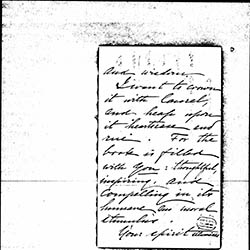 and wisdom.
I want to crown
it with laurel,
and heap upon
it heartsease and
rue. For the
book is filled
with you: thoughtful,
inspiring and
compelling in its
humane and moral
stimulus.
Your spirit